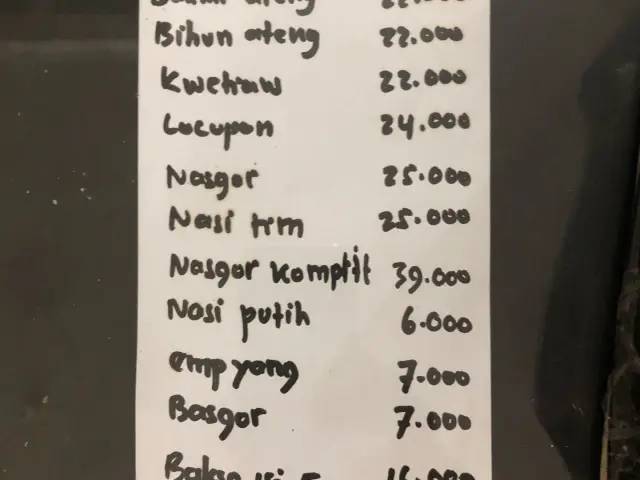 ateng 22.000
Bihun ateng 22.000
Kwetiaw 22.000
Locupan 24.000
Nasgor 25.000
Nasi tim 25.000
Nasgor komplit 39.000
Nasi putih 6.000
empyang 7.000
Basgor 7.000
Bakso isi 5 16.000